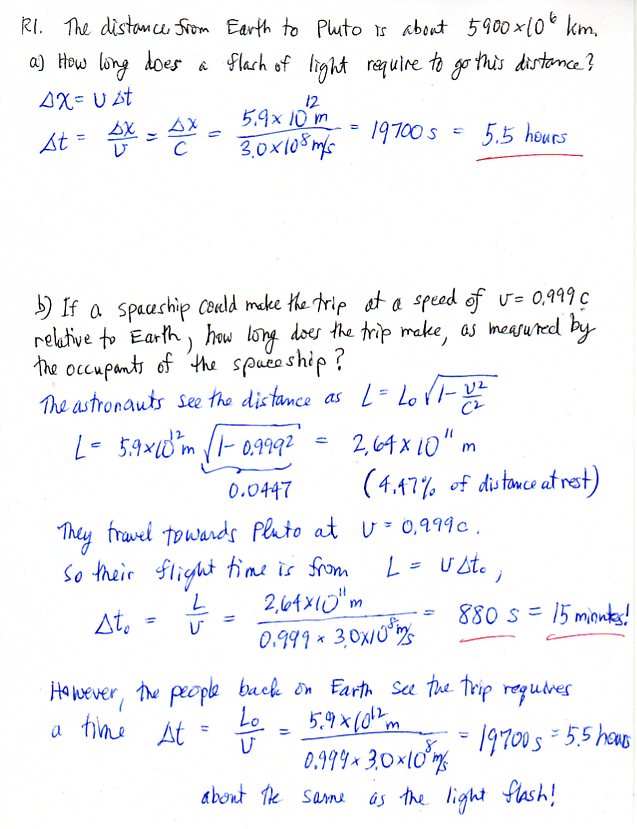 R1. The distance from Earth to Pluto is about 5900×10⁶ km.
a) How long does a flash of light require to go this distance?
Δx = υ Δt
Δt = Δx/υ = Δx/c = 5.9×10¹² m / 3.0×10⁸ m/s = 19700 s = 5.5 hours
b) If a spaceship could make the trip at a speed of υ = 0.999 c
relative to Earth, how long does the trip make, as measured by
the occupants of the spaceship?
The astronauts see the distance as L = L₀ √(1 - υ²/c²)
L = 5.9×10¹² m √(1 - 0.999²) = 2.64×10¹¹ m
0.0447 (4.47% of distance at rest)
They travel towards Pluto at υ = 0.999c.
So their flight time is from L = υ Δt₀,
Δt₀ = L/υ = 2.64×10¹¹ m / 0.999 × 3.0×10⁸ m/s = 880 s = 15 minutes!
However, the people back on Earth see the trip requires
a time Δt = L₀/υ = 5.9×10¹² m / 0.999 × 3.0×10⁸ m/s = 19700 s = 5.5 hours
about the same as the light flash!